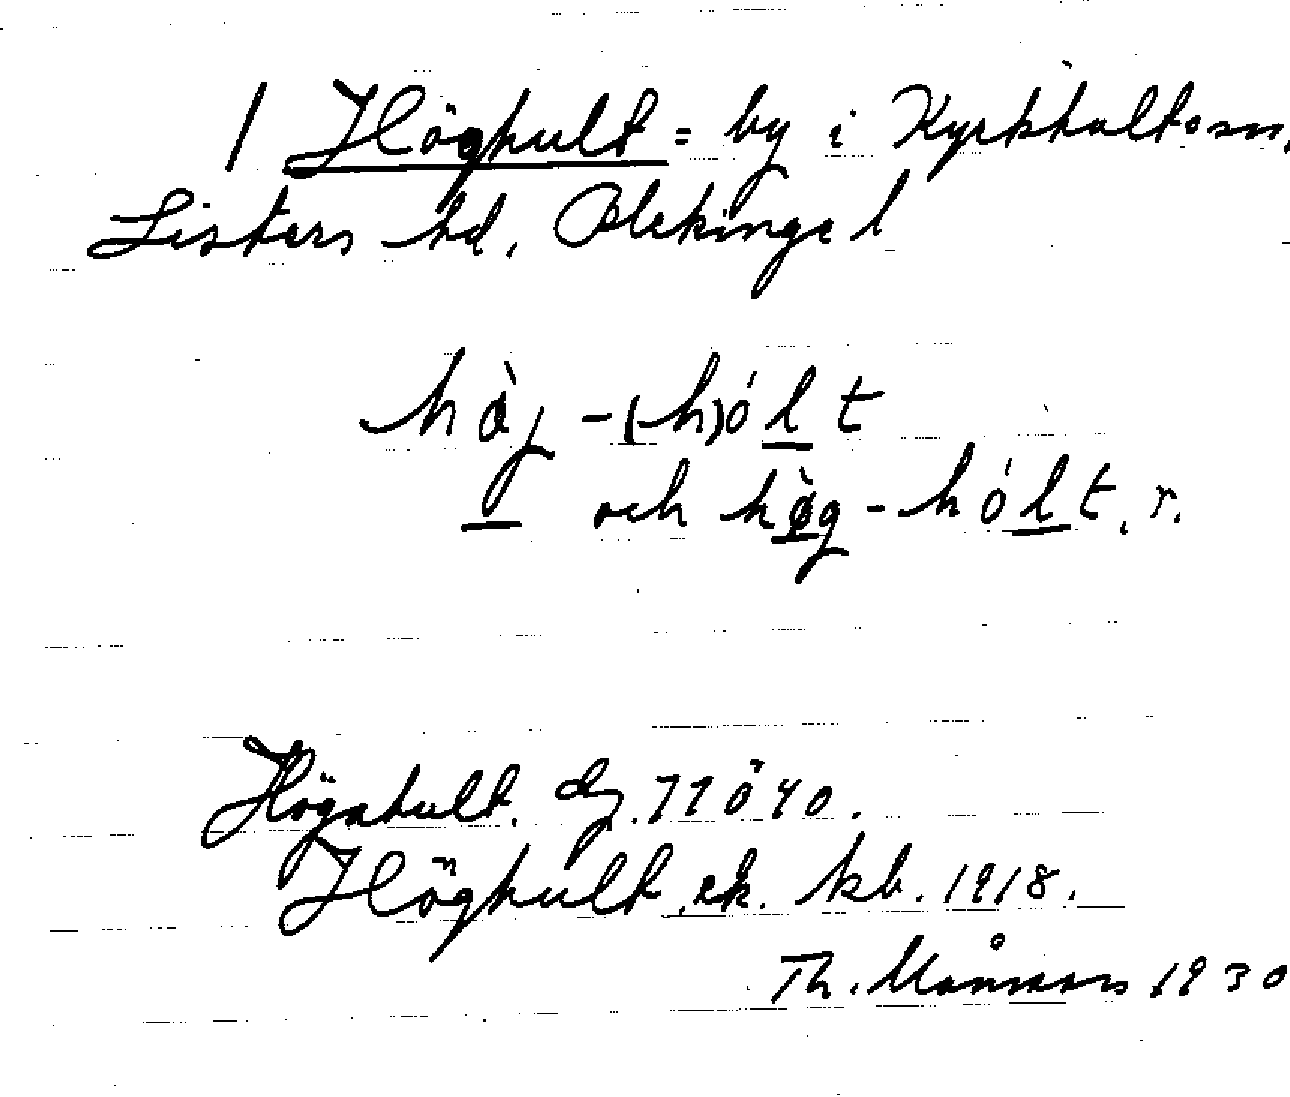 / Höghult = by i Kyrkhults sn,
Listers hd, Blekinge l
hø̀j -(h)ólt
och hø̀g - hólt. r.
Högahult. dj. 77 ö 40.
Höghult. ek. kb. 1918.
Th. Månsson 1930